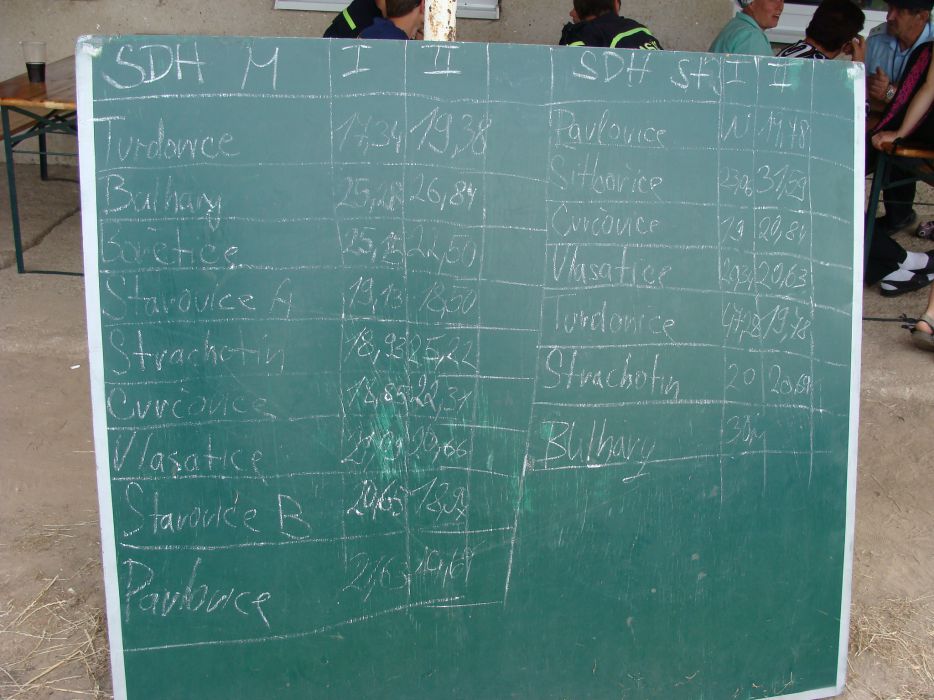 SDH M I II
Tvrdonice 17,34 19,38
Bulhary 26,84
Bořetice 25,15
Starovice A 19,13 18,50
Strachotin 18,93 25,22
Cvrčovice 18,85 22,31
Vlasatice 20,66
Starovice B 20,65
Pavlovice 21,63 19,69
SDH st. I II
Pavlovice N
Sitbořice 31,59
Cvrčovice 19 20,81
Vlasatice 20,63
Tvrdonice 19,78
Strachotin 20
Bulhary